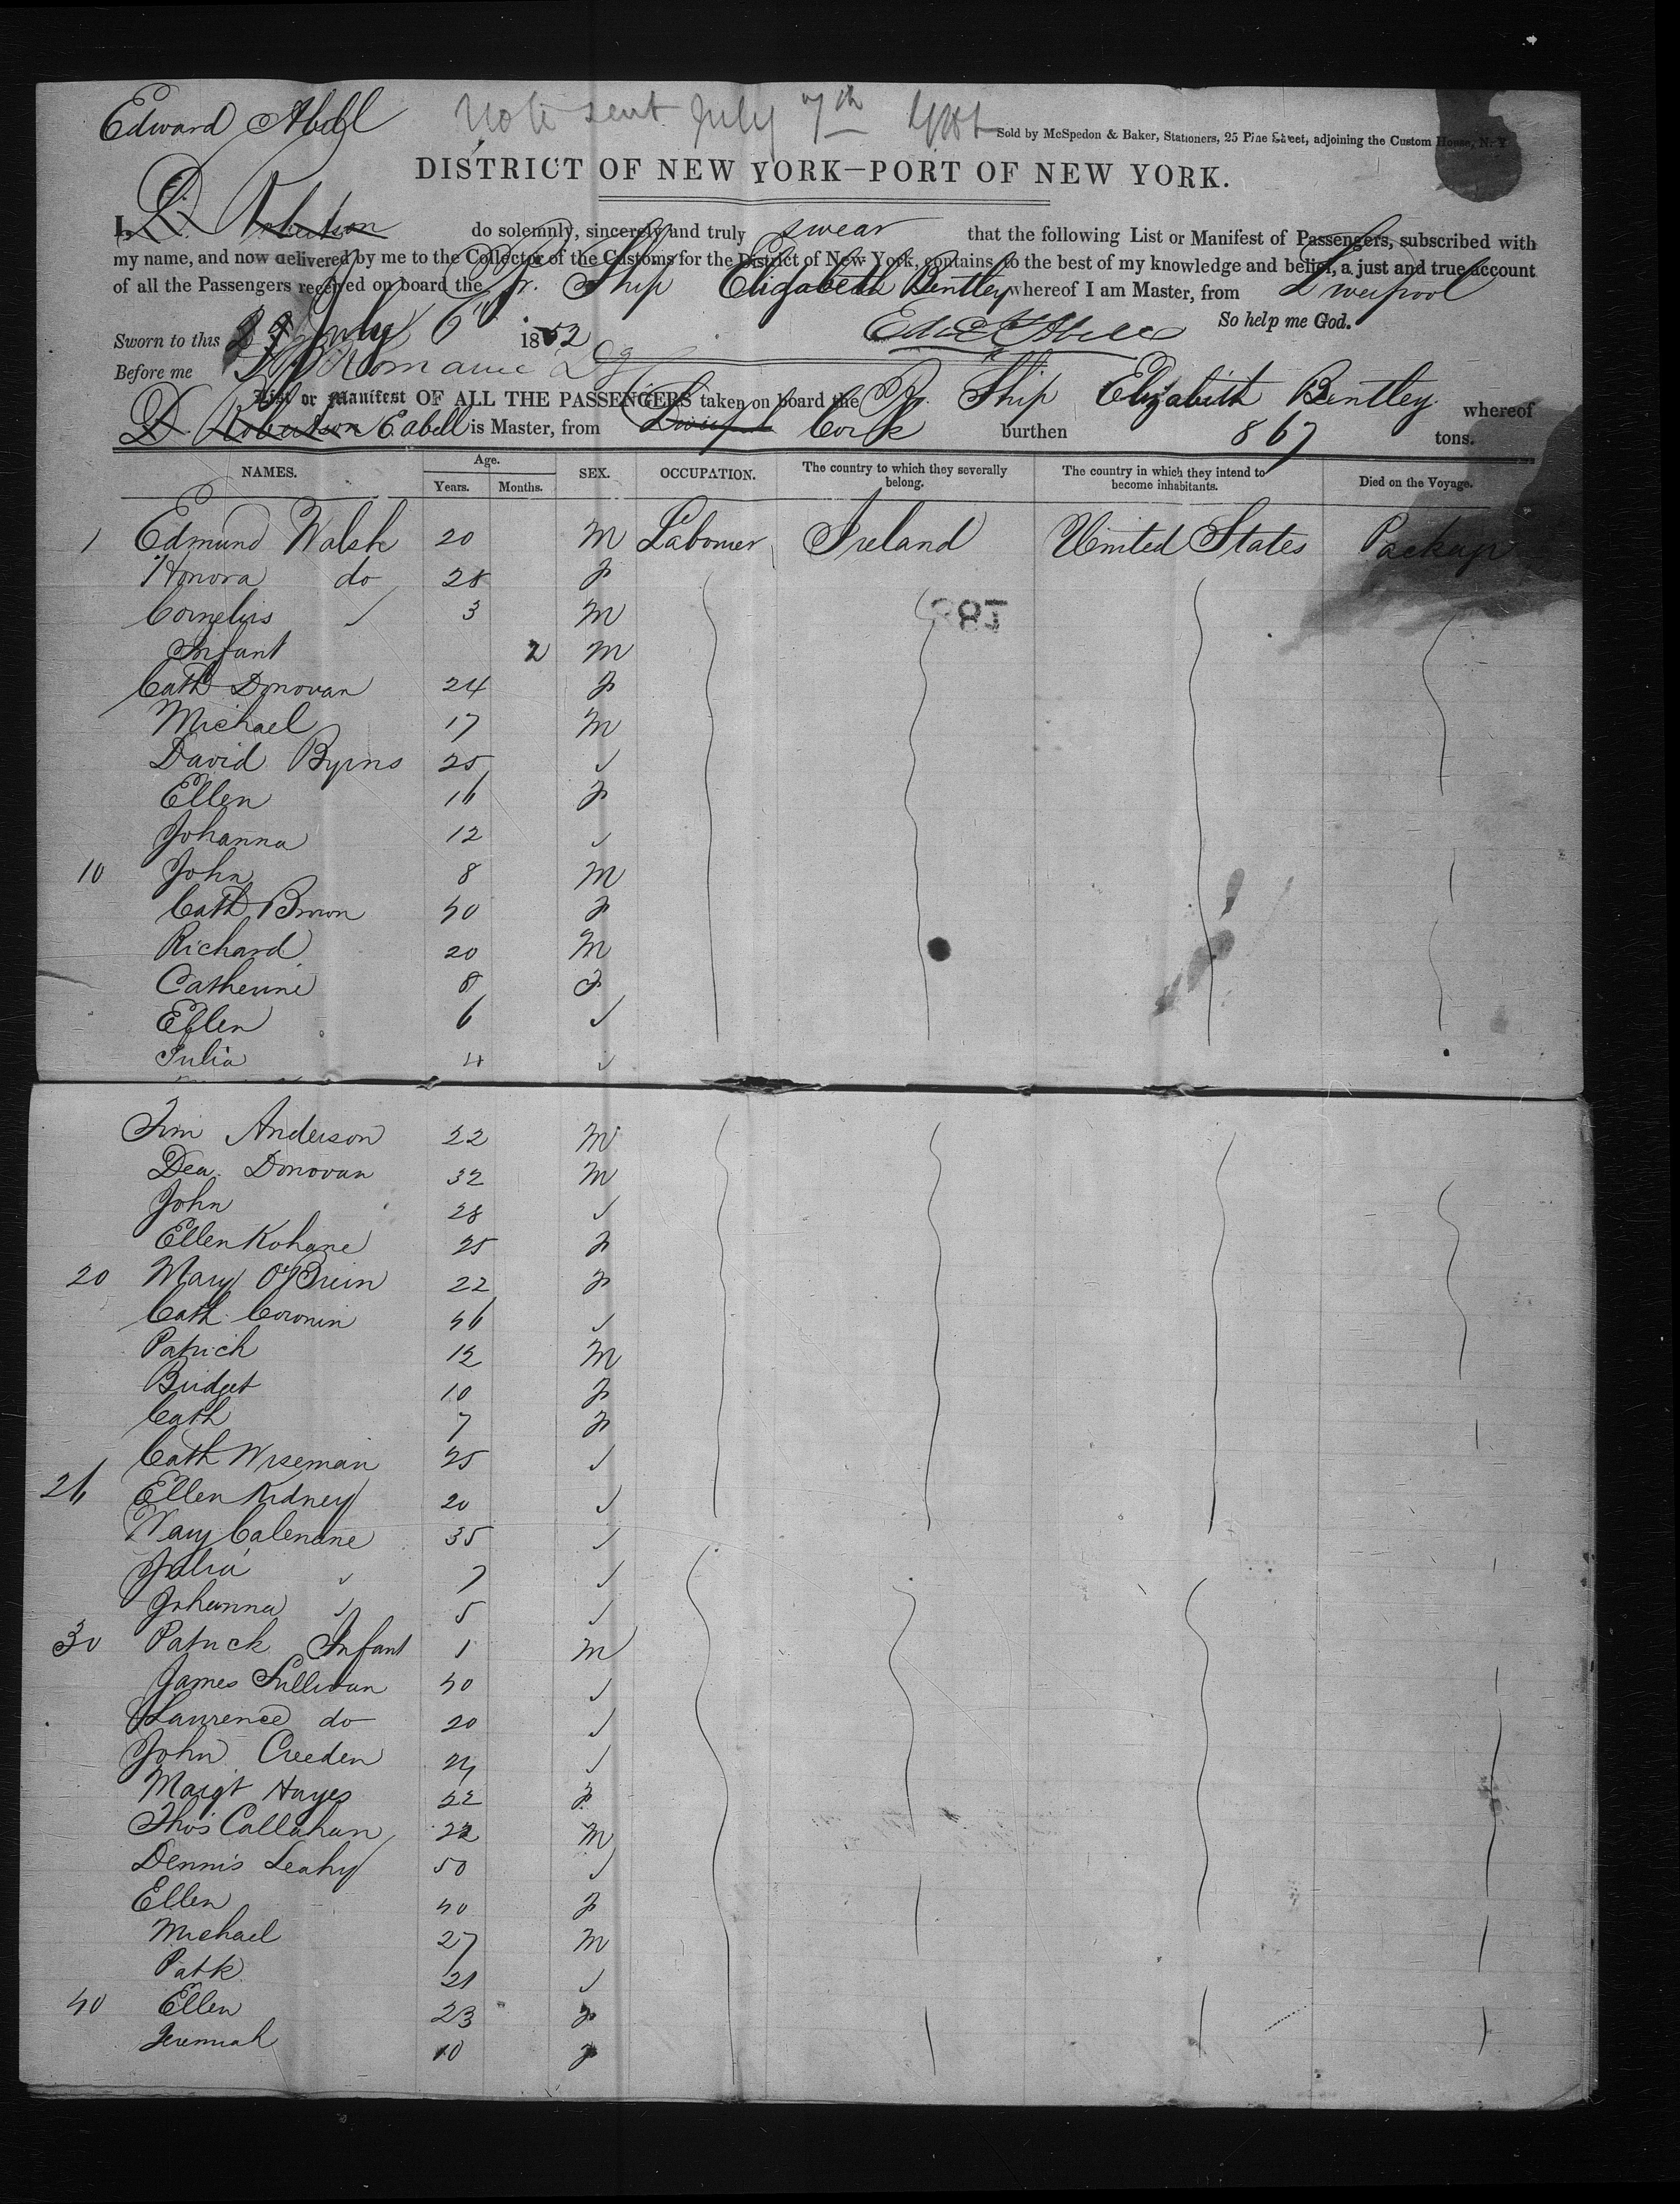 Edward Abell Note sent July 7th
Sold by McSpedon & Baker, Stationers, 25 Pine Street, adjoining the Custom House, N. Y.
DISTRICT OF NEW YORK—PORT OF NEW YORK.
I, D. Robertson do solemnly, sincerely and truly swear that the following List or Manifest of Passengers, subscribed with
my name, and now delivered by me to the Collector of the Customs for the District of New York, contains to the best of my knowledge and belief, a just and true account
of all the Passengers received on board the Br. Ship Elizabeth Bentley whereof I am Master, from Liverpool
Sworn to this July 6th 1852 Edwd Abell So help me God.
Before me
List or Manifest OF ALL THE PASSENGERS taken on board the Br. Ship Elizabeth Bentley whereof
D. Robertson E Abell is Master, from Liverpool Cork burthen 867 tons.
NAMES. Age. Years. Months. SEX. OCCUPATION. The country to which they severally belong. The country in which they intend to become inhabitants. Died on the Voyage.
1 Edmund Walsh 20 M Labourer Ireland United States Package
Honora do 28 F
Cornelius ✓ 3 M
Infant 2 M
Cath Donovan 24 F
Michael 17 M
David Byrns 25 ✓
Ellen 16 F
Johanna 12 ✓
10 John 8 M
Cath Brown 40 F
Richard 20 M
Catherine 8 F
Ellen 6 ✓
Julia 4 ✓
Tim Anderson 22 M
Dea. Donovan 32 M
John 28 ✓
Ellen Kohane 25 F
20 Mary O'Brein 22 F
Cath. Coronin 46 ✓
Patrick 12 M
Bridget 10 F
Cath 7 F
Cath Wiseman 25 ✓
26 Ellen Kidney 20 ✓
Mary Calenane 35 ✓
Julia ✓ 7 ✓
Johanna ✓ 5 ✓
30 Patrick Infant 1 M
James Sullivan 40 ✓
Laurence do 20 ✓
John Creeden 24 ✓
Margt Hayes 22 F
Thos Callahan 22 M
Dennis Leahy 50 ✓
Ellen 40 F
Michael 27 M
Patk 21 ✓
40 Ellen 23 F
Jeremiah 10 F